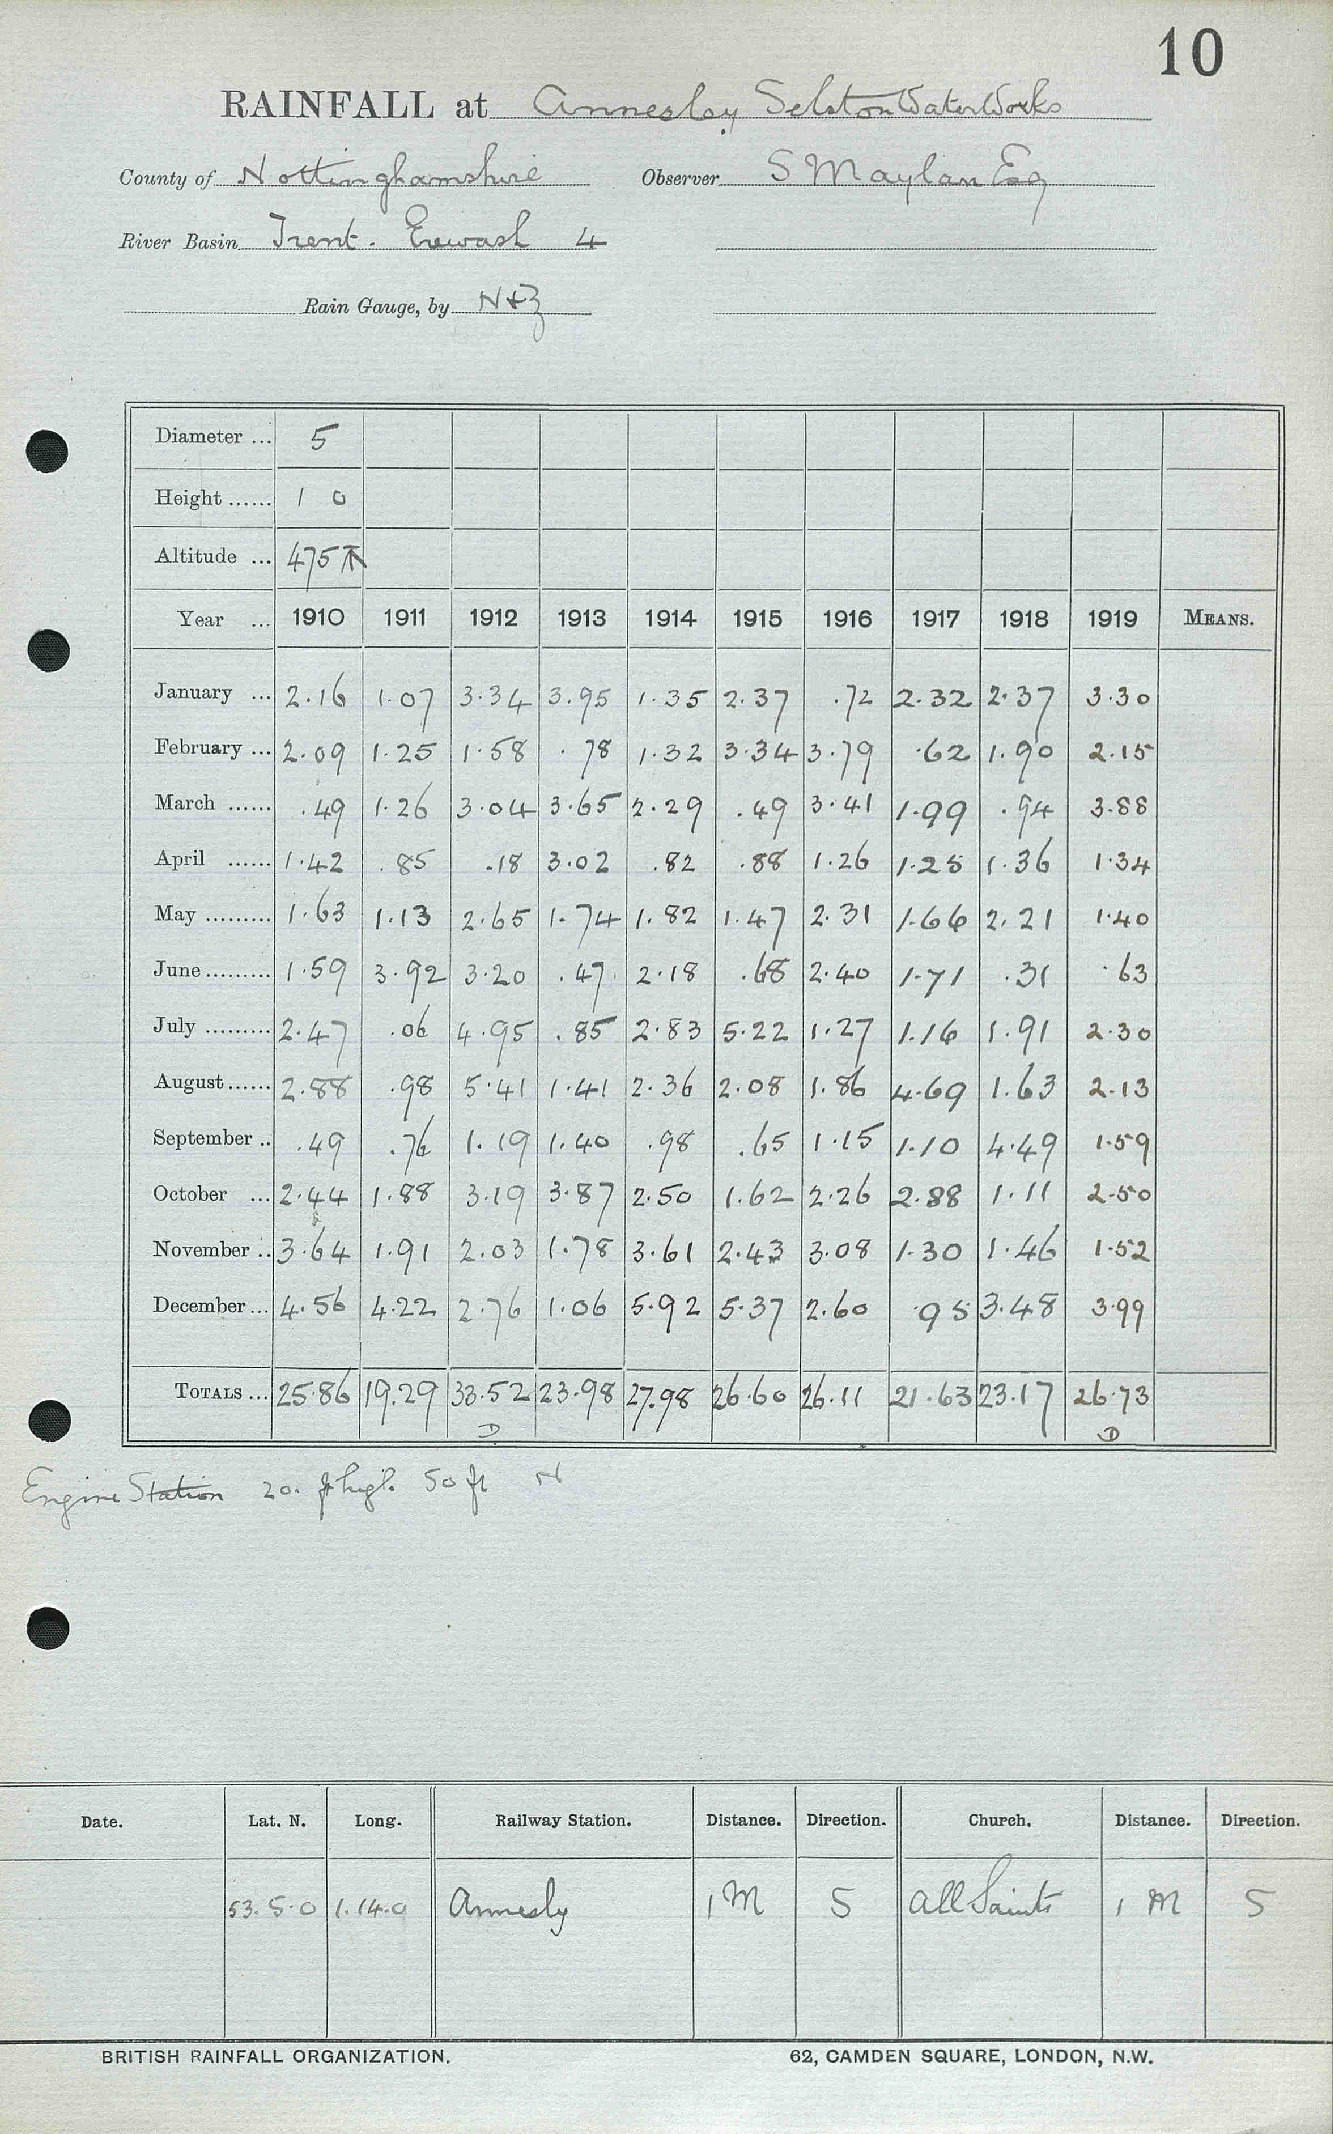 10
RAINFALL at Annesley Selston Water Works
County of Nottinghamshire Observer S Maylan Esq
River Basin Trent. Erewash 4
Rain Gauge, by N&Z
Diameter ... 5
Height ...... 1 0
Altitude ... 475
Year ... 1910 1911 1912 1913 1914 1915 1916 1917 1918 1919 MEANS.
January ... 2.16 1.07 3.34 3.95 1.35 2.37 .72 2.32 2.37 3.30
February ... 2.09 1.25 1.58 .78 1.32 3.34 3.79 .62 1.90 2.15
March ...... .49 1.26 3.04 3.65 2.29 .49 3.41 1.99 .94 3.88
April ...... 1.42 .85 .18 3.02 .82 .88 1.26 1.25 1.36 1.34
May ......... 1.63 1.13 2.65 1.74 1.82 1.47 2.31 1.66 2.21 1.40
June ......... 1.59 3.92 3.20 .47 2.18 .68 2.40 1.71 .31 .63
July ......... 2.47 .06 4.95 .85 2.83 5.22 1.27 1.16 1.91 2.30
August ...... 2.88 .98 5.41 1.41 2.36 2.08 1.86 4.69 1.63 2.13
September .. .49 .76 1.19 1.40 .98 .65 1.15 1.10 4.49 1.59
October ... 2.44 1.88 3.19 3.87 2.50 1.62 2.26 2.88 1.11 2.50
November .. 3.64 1.91 2.03 1.78 3.61 2.43 3.08 1.30 1.46 1.52
December ... 4.56 4.22 2.76 1.06 5.92 5.37 2.60 .95 3.48 3.99
TOTALS ... 25.86 19.29 33.52 23.98 27.98 26.60 26.11 21.63 23.17 26.73
D D
Engine Station 20. ft high. 50 ft N
Date. Lat. N. Long. Railway Station. Distance. Direction. Church. Distance. Direction.
53.5.0 1.14.0 Annesly 1 M S All Saints 1 M S
BRITISH RAINFALL ORGANIZATION. 62, CAMDEN SQUARE, LONDON, N.W.